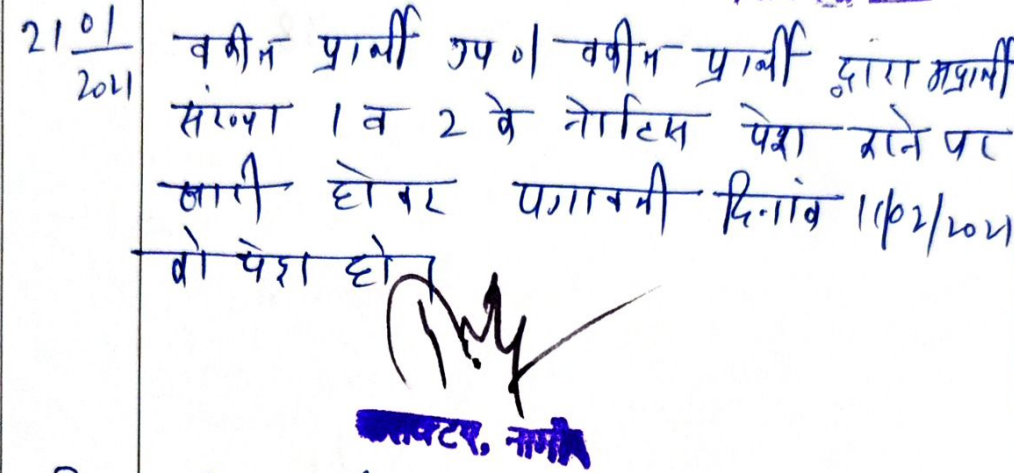 21/01/2021 वकील प्रार्थी उप०। वकील प्रार्थी द्वारा अप्रार्थी
संख्या 1 व 2 के नोटिस पेश करने पर
जारी होकर पत्रावली दिनांक 11/02/2021
को पेश हो।
कलक्टर, नागौर